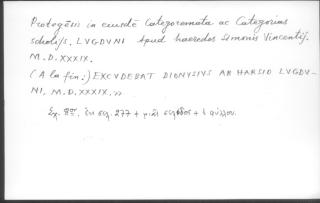 Prolegōsis in eiusdē Categoremata ac Categorias
scholijs. LVGDVNI Apud haeredes Simonis Vincentij.
M.D.XXXIX.
(A la fin:) EXCVDEBAT DIONYSIVS AB HARSIO LVGDV-
NI, M.D.XXXIX.»
Σχ. 8ον. ἐκ σελ. 277 + μιᾶς σελίδος + 1 φύλλου.